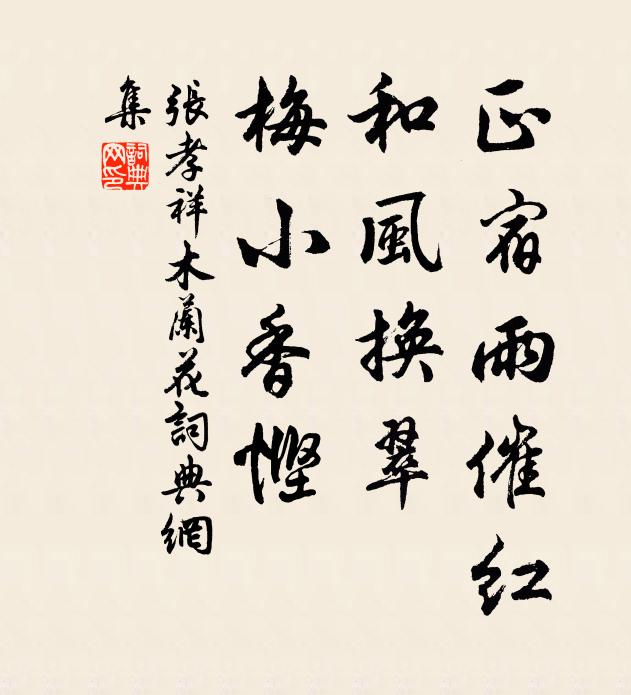 正宿雨催紅
和風換翠
梅小香慳
張孝祥木蘭花詞典網
集
詞典網印